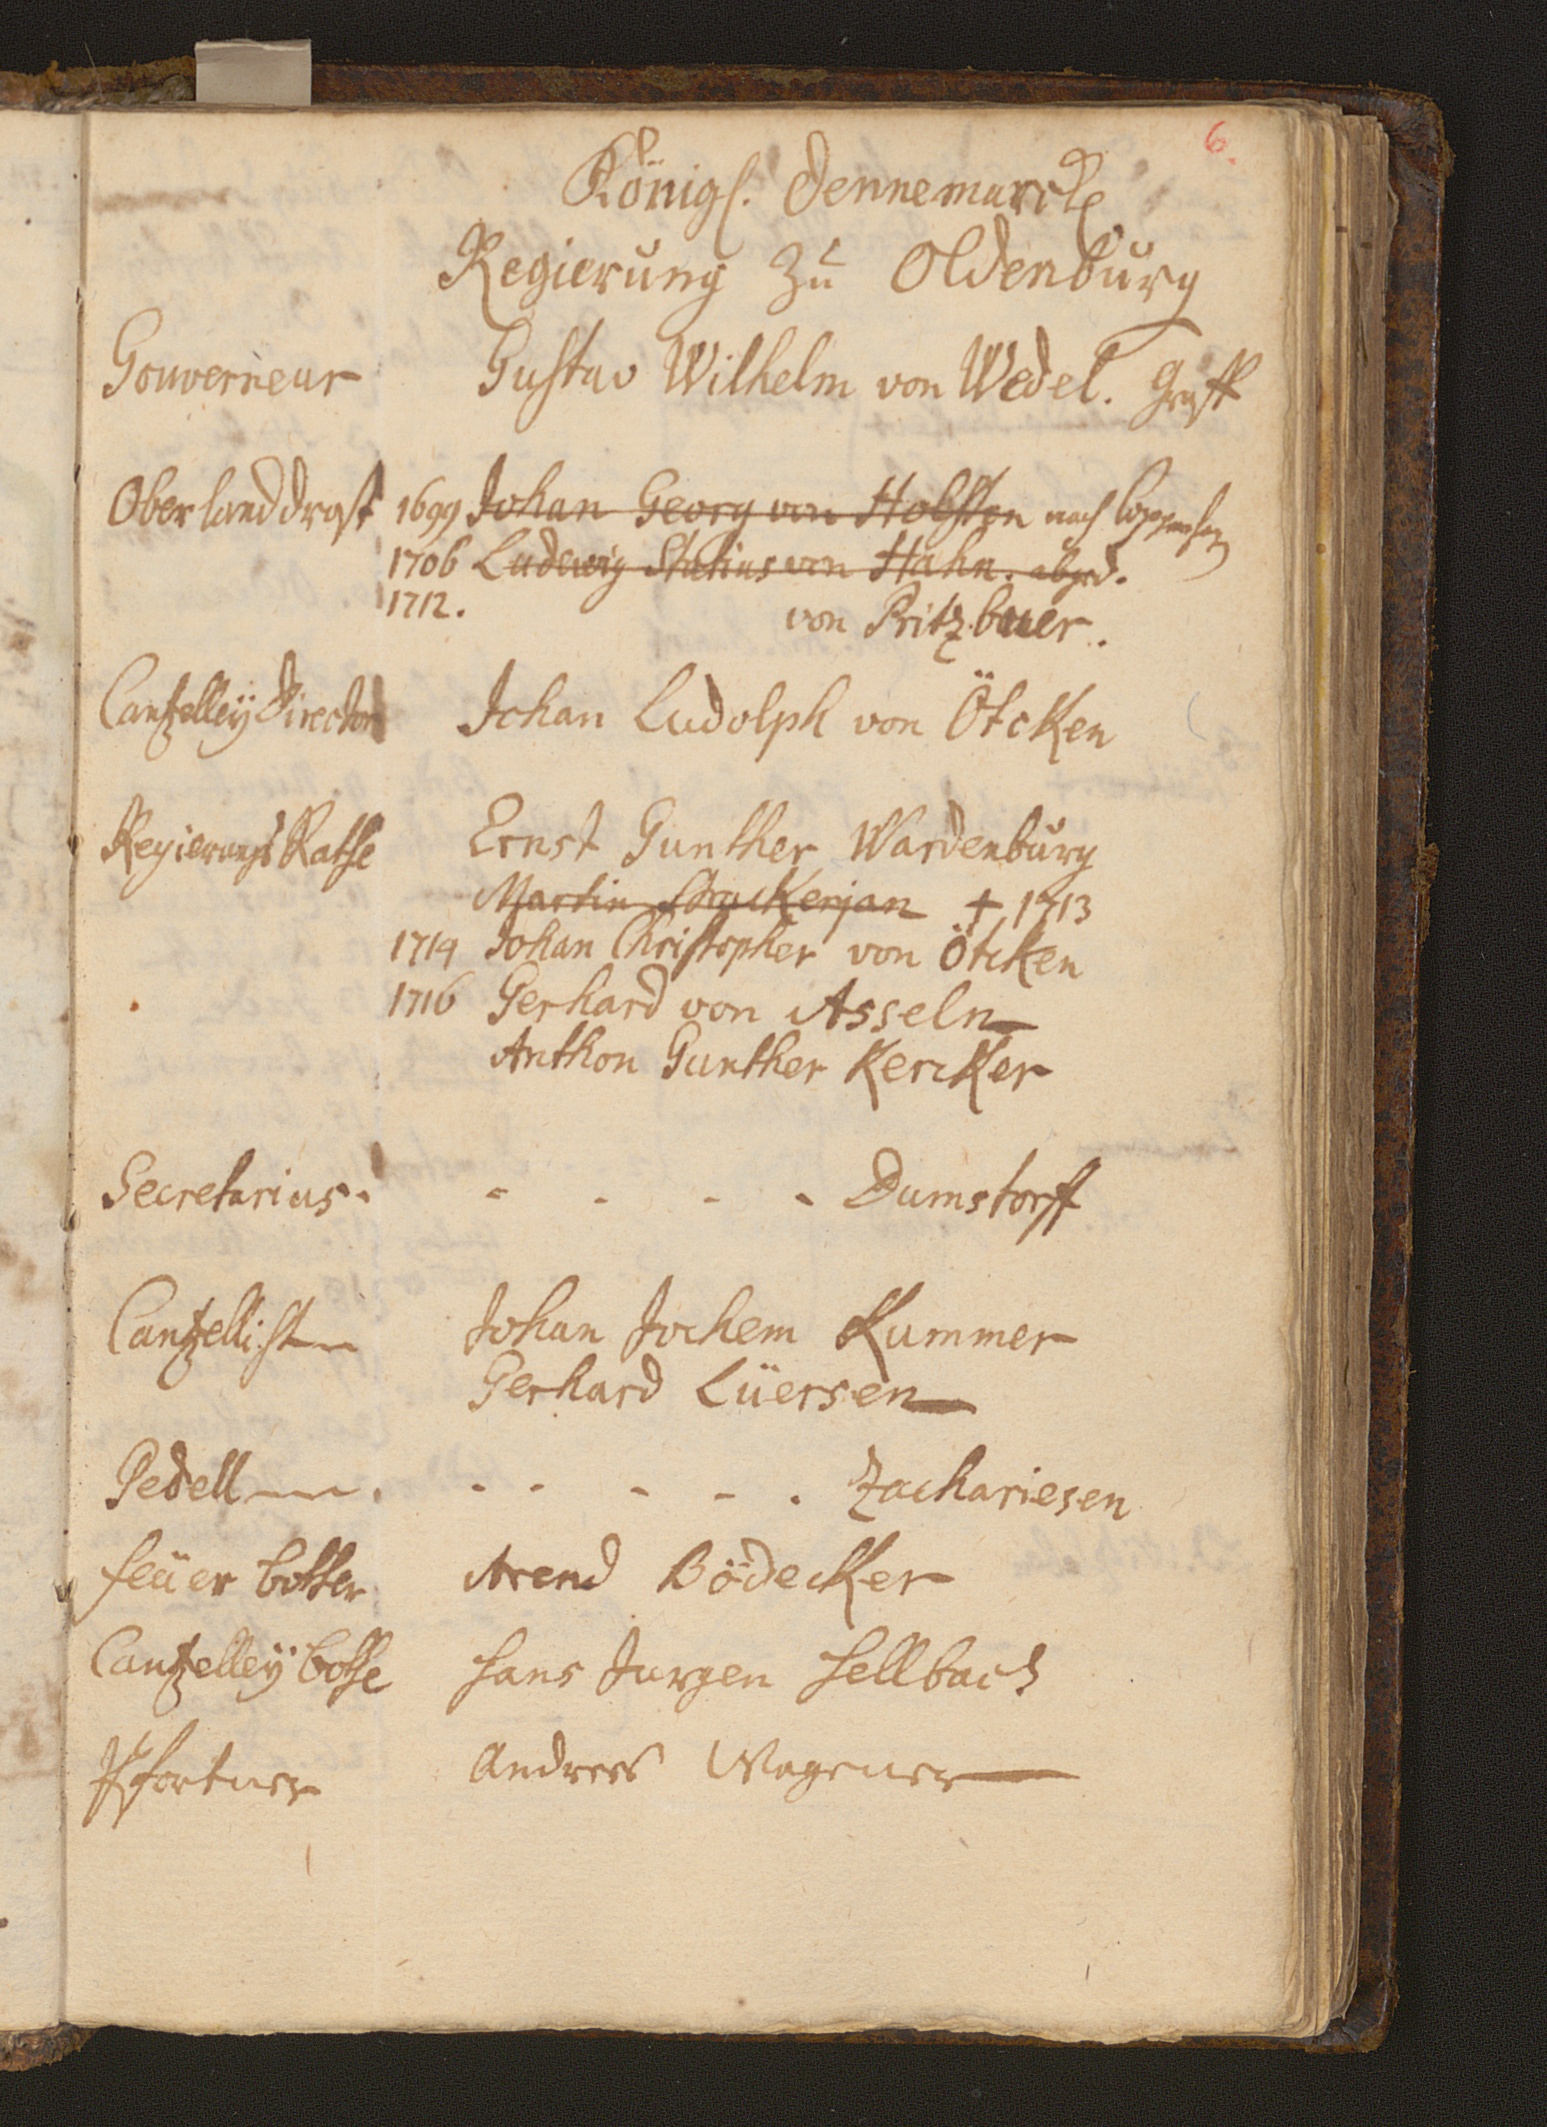 6.
Königl. Dennemarck
Regierung zu Oldenburg
Gouverneur Gustav Wilhelm von Wedel. Graff
Ober landdrost 1699 Johan Georg von Holsten nach Coppenhag
1706 Ludewig Statius von Hahn. abged.
1712. von Pritzbauer.
Cantzelleÿ Director Johan Ludolph von Ötcken
Regierungs Rathe Ernst Gunther Wardenburg
Martin Strackerjan † 1713
1714 Johan Christopher von Ötcken
1716 Gerhard von Asseln
Anthon Gunther Kercker
Secretarius. - - - - Dumstorff
Cantzellisten Johan Jochem Kummer
Gerhard Lüersen
Pedellen. - - - - . Zachariesen
feüer botter Arend Bödecker
Cantzelleÿ bothe Hans Jurgen Hellbach
Pfortner Andrees Wagener